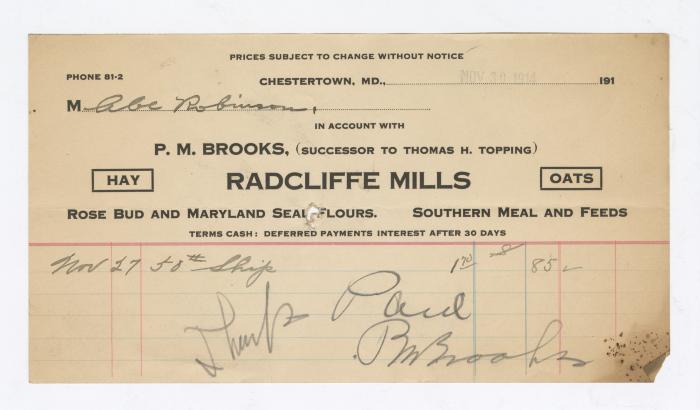 PRICES SUBJECT TO CHANGE WITHOUT NOTICE
PHONE 81-2
CHESTERTOWN, MD., NOV 30 1914 191
M Abe Robinson,
IN ACCOUNT WITH
P. M. BROOKS, (SUCCESSOR TO THOMAS H. TOPPING)
HAY RADCLIFFE MILLS OATS
ROSE BUD AND MARYLAND SEAL FLOURS. SOUTHERN MEAL AND FEEDS
TERMS CASH: DEFERRED PAYMENTS INTEREST AFTER 30 DAYS
Nov 27 50# Ship 1 70 85
Paid
PM Brooks